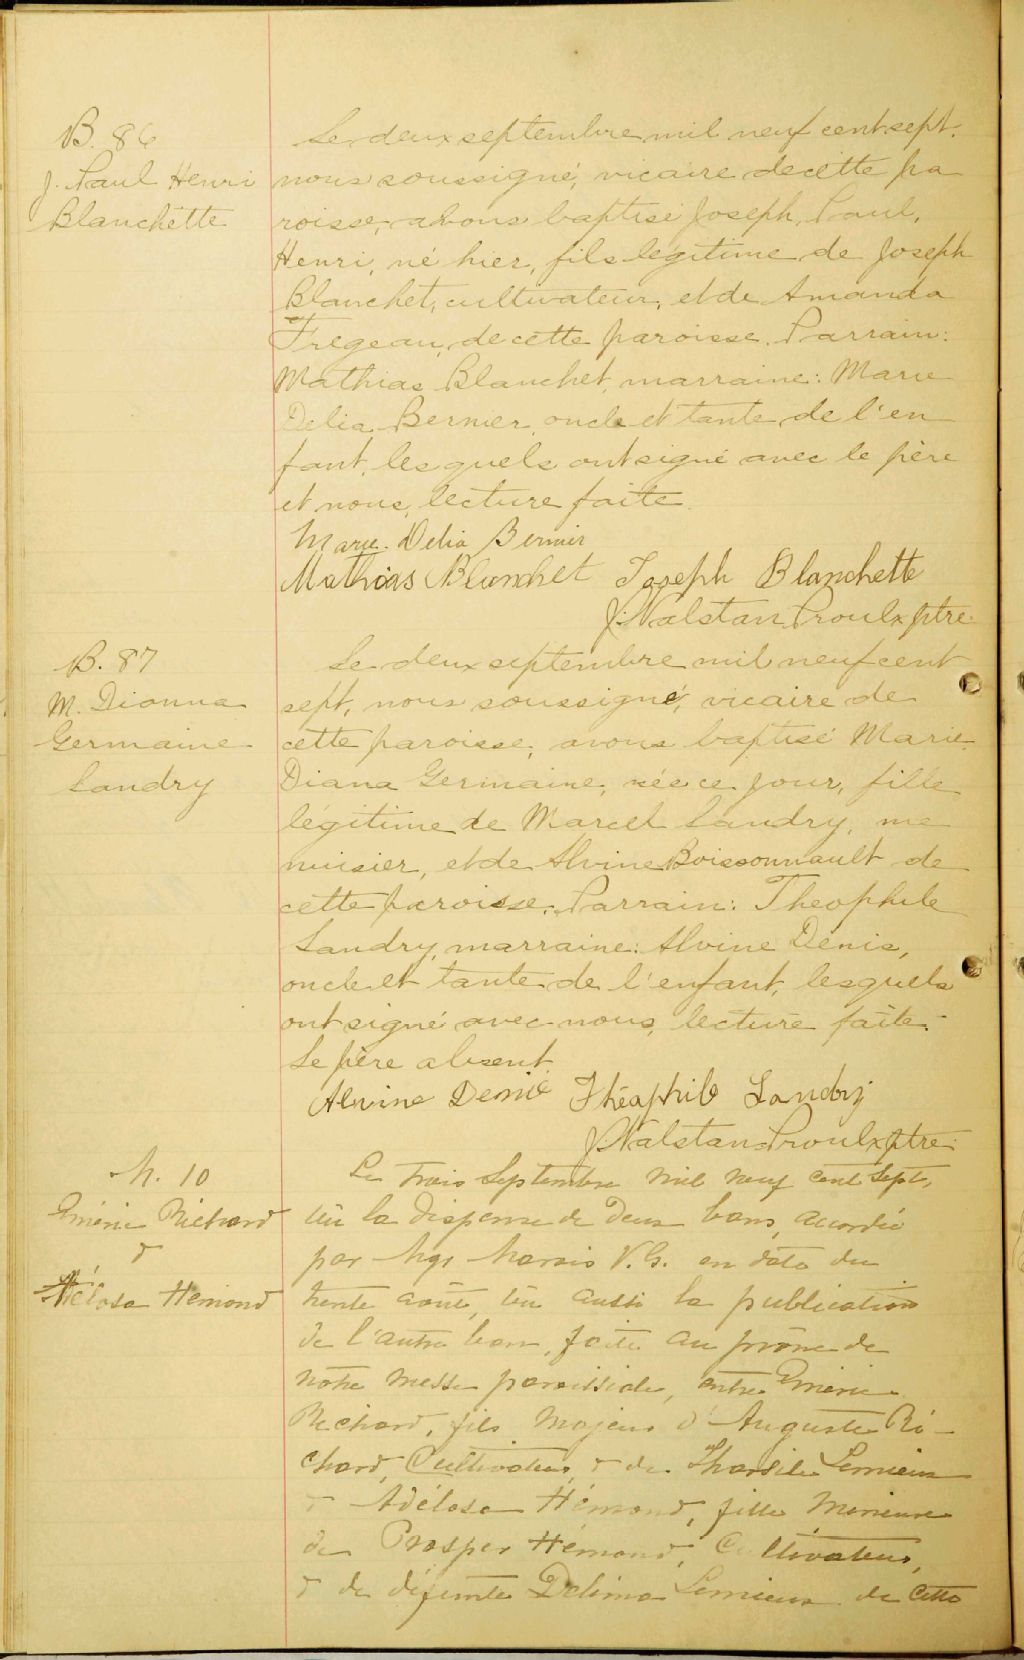 B. 86
J. Paul Henri
Blanchette
Le deux septembre mil neuf cent sept.
nous soussigné, vicaire de cette pa
roisse, avons baptisé Joseph, Paul,
Henri, né hier, fils légitime de Joseph
Blanchet, cultivateur, et de Amanda
Fregeau, de cette paroisse. Parrain:
Mathias Blanchet, marraine: Marie
Delia Bernier, oncle et tante de l'en
fant, lesquels ont signé avec le père
et nous, lecture faite.
Marie Delia Bernier
Mathias Blanchet Joseph Blanchette
J. Nalstan Proulx ptre
B. 87
M. Dianna
Germaine
Landry
Le deux septembre mil neuf cent
sept, nous soussigné, vicaire de
cette paroisse, avons baptisé Marie
Diana Germaine, née ce jour, fille
légitime de Marcel Landry, me
nuisier, et de Alvine Boissonnault de
cette paroisse. Parrain: Theophile
Landry, marraine: Alvine Denis,
oncle et tante de l'enfant, lesquels
ont signé avec nous, lecture faite.
Le père absent
Alvine Denis Théophile Landry
J. Nalstan Proulx ptre
M. 10
Émérie Richard
&
Adélosa Hémond
Le trois Septembre mil neuf cent Sept,
Vu la dispense de deux bans, accordée
par Mgr Marois V.G. en date du
trente août, vu aussi la publication
de l'autre ban, faite au prône de
notre messe paroissiale, entre Émérie
Richard, fils majeur d'Auguste Ri-
chard, Cultivateur, & de Tharsile Lemieux
& Adélosa Hémond, fille mineure
de Prosper Hémond, Cultivateur,
& de défunte Delima Lemieux de cette